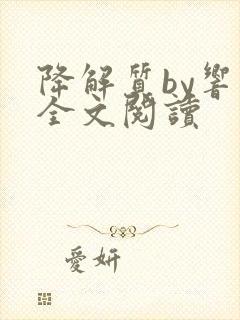 降解質by響
全文閱讀
愛妍